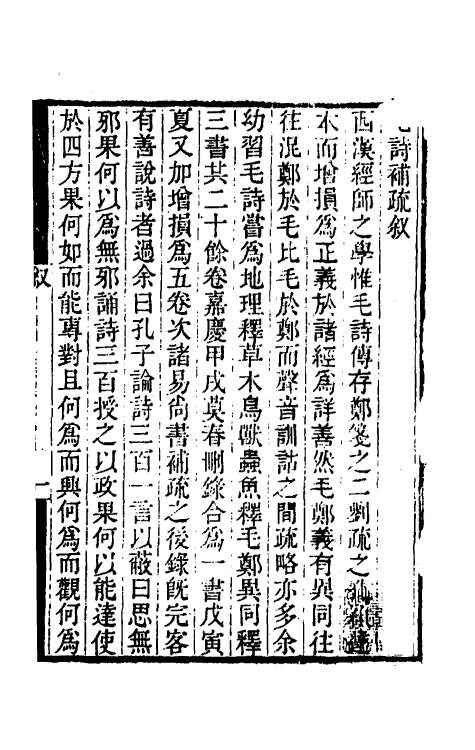 詩補疏叙
西漢經師之學惟毛詩傳存鄭箋之二劉疏之
本而增損爲正義於諸經爲詳善然毛鄭義有異同往
往混鄭於毛比毛於鄭而聲音訓詁之間疏略亦多余
幼習毛詩嘗爲地理釋草木鳥獸蟲魚釋毛鄭異同釋
三書共二十餘卷嘉慶甲戌莫春刪錄合爲一書戊寅
夏又加增損爲五卷次諸易尚書補疏之後錄旣完客
有善說詩者過余曰孔子論詩三百一言以蔽曰思無
邪果何以爲無邪誦詩三百授之以政果何以能達使
於四方果何如而能專對且何爲而興何爲而觀何爲
叙
一